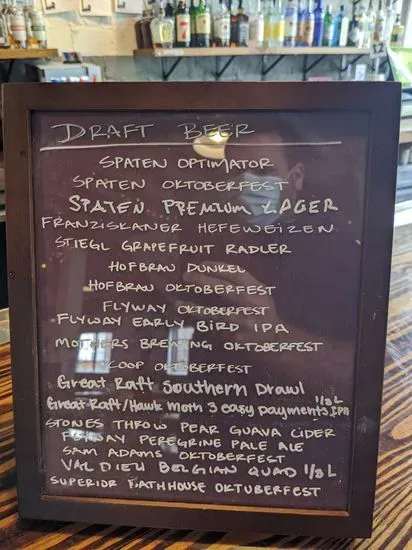 DRAFT BEER
SPATEN OPTIMATOR
SPATEN OKTOBERFEST
SPATEN PREMIUM LAGER
FRANZISKANER HEFEWEIZEN
STIEGL GRAPEFRUIT RADLER
HOFBRAU DUNKEL
HOFBRAU OKTOBERFEST
FLYWAY OKTOBERFEST
FLYWAY EARLY BIRD IPA
MOTHERS BREWING OKTOBERFEST
COOP OKTOBERFEST
Great Raft Southern Drawl
Great Raft/Hawk Moth 3 easy payments IPA 1/3 L
STONES THROW PEAR GUAVA CIDER
FLYWAY PEREGRINE PALE ALE
SAM ADAMS OKTOBERFEST
VAL DIEU BELGIAN QUAD 1/3 L
SUPERIOR BATHHOUSE OKTUBERFEST